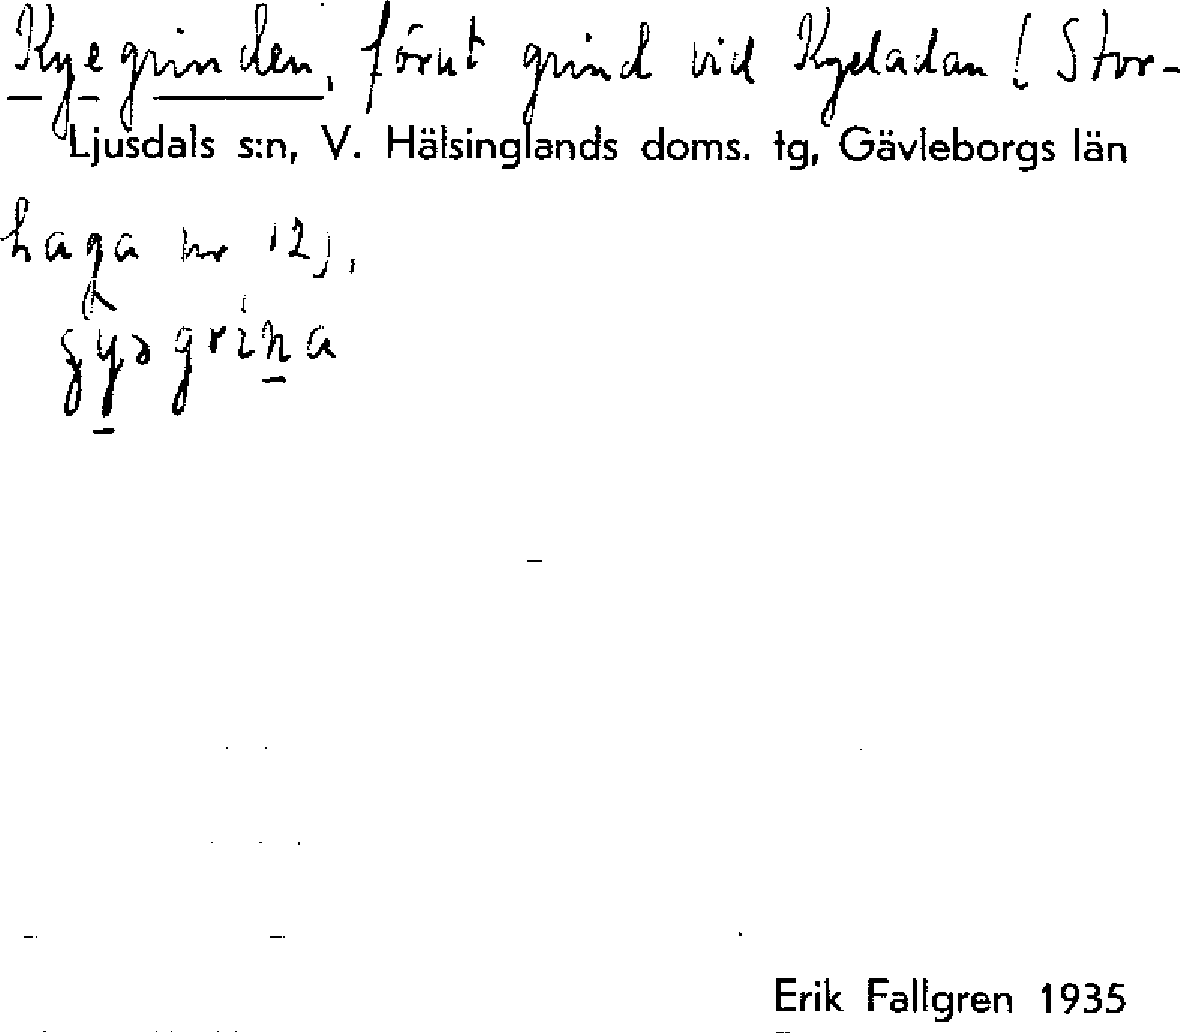 Kyegrinden, förut grind vid Kyeladan (Stor-
Ljusdals s:n, V. Hälsinglands doms. tg, Gävleborgs län
haga nr 12),
Erik Fallgren 1935